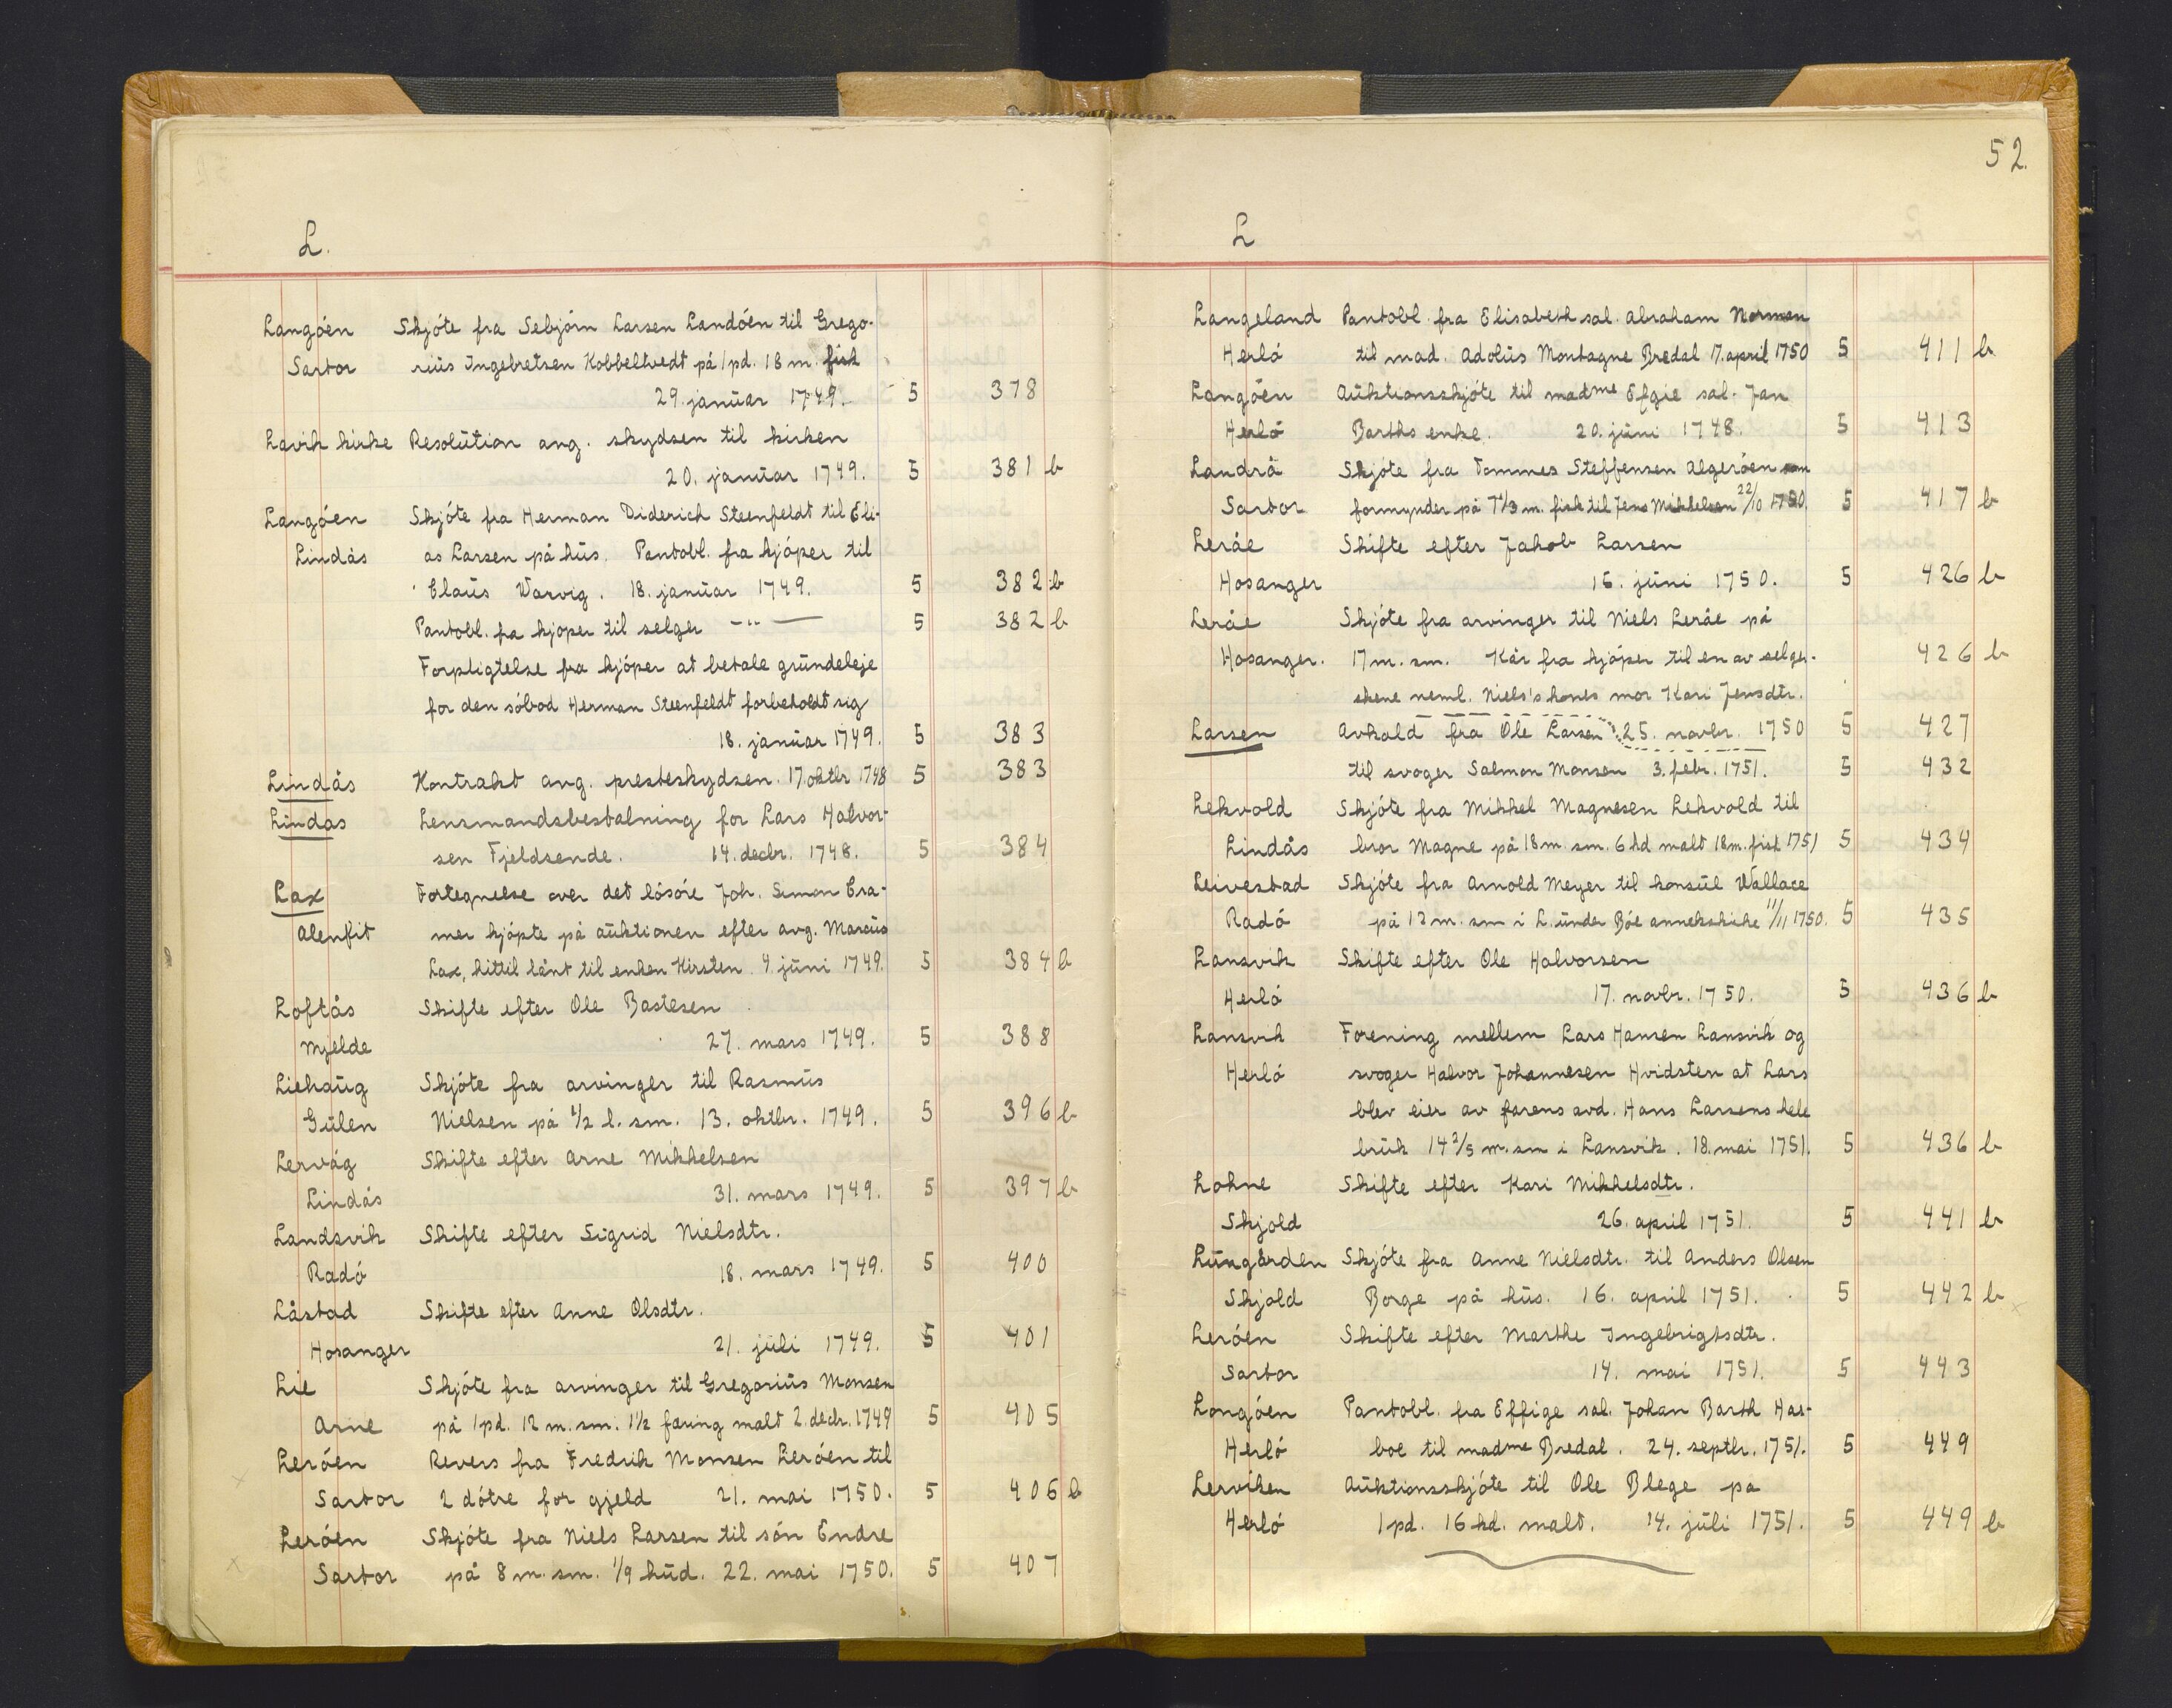 L.
Langöen Skjöte fra Sebjörn Larsen Landöen til Grego-
Sartor rius Ingebretsen Kobbeltvedt på 1 pd. 18 m. fisk
29. januar 1749. 5 378
Lavik kirke Resolution ang. skydsen til kirken
20. januar 1749. 5 381 b
Langöen Skjöte fra Herman Diderich Steenfeldt til Eli-
Lindås as Larsen på hus. Pantobl. fra kjöper til
Claus Warvig. 18. januar 1749. 5 382 b
Pantobl. fra kjöper til selger -"- 5 382 b
Forpligtelse fra kjöper at betale grundeleje
for den söbod Herman Steenfeldt forbeholdt sig
18. januar 1749. 5 383
Lindås Kontrakt ang. presteskydsen. 17. oktbr 1748 5 383
Lindås Lensmandsbestalning for Lars Halvor-
sen Fjeldsende. 14. decbr. 1748. 5 384
Lax Fortegnelse over det lösöre Joh. Simon Cra-
Alenfit mer kjöpte på auktionen efter avg. Marcus
Lax, hittil lånt til enken Kirsten. 9. juni 1749. 5 384 b
Loftås Skifte efter Ole Bastesen
Mjelde 27. mars 1749. 5 388
Liehaug Skjöte fra arvinger til Rasmus
Gulen Nielsen på 1/2 l. sm. 13. oktbr. 1749. 5 396 b
Lervåg Skifte efter Arne Mikkelsen
Lindås 31. mars 1749. 5 397 b
Landsvik Skifte efter Sigrid Nielsdtr.
Radö 18. mars 1749. 5 400
Låstad Skifte efter Anne Olsdtr.
Hosanger 21. juli 1749. 5 401
Lie Skjöte fra arvinger til Gregorius Monsen
Arne på 1 pd. 12 m. sm. 1 1/2 færing malt 2. decbr. 1749 5 405
Leröen Revers fra Fredrik Monsen Leröen til
Sartor 2 dötre for gjeld 21. mai 1750. 5 406 b
Leröen Skjöte fra Niels Larsen til sön Endre
Sartor på 8 m. sm. 1/9 hud. 22. mai 1750. 5 407
52.
L
Langeland Pantobl. fra Elisabeth sal. Abraham Norman
Herlö til mad. Adolus Montagne Bredal 17. april 1750 5 411 b
Langöen Auktionsskjöte til madme Efgie sal. Jan
Herlö Barths enke. 20. juni 1748. 5 413
Landrå Skjöte fra Tommes Steffensen Algeröen som
Sartor formynder på 7 1/3 m. fisk til Jens Mikkelsen 22/10 1750. 5 417 b
Leråe Skifte efter Jakob Larsen
Hosanger 16. juni 1750. 5 426 b
Leråe Skjöte fra arvinger til Niels Leråe på
Hosanger. 17 m. sm. Kår fra kjöper til en av selger- 426 b
skene neml. Niels's kones mor Kari Jensdtr.
Larsen Avkald fra Ole Larsen 25. novbr. 1750 5 427
til svoger Salmon Monsen 3. febr. 1751. 5 432
Lekvold Skjöte fra Mikkel Magnesen Lekvold til
Lindås bror Magne på 18 m. sm. 6 hd malt 18 m. fisk 1751 5 434
Leivestad Skjöte fra Arnold Meyer til konsul Wallace
Radö på 12 m. sm i L. under Böe annekskirke 11/11 1750. 5 435
Lansvik Skifte efter Ole Halvorsen
Herlö 17. novbr. 1750. 5 436 b
Lansvik Forening mellem Lars Hansen Lansvik og
Herlö svoger Halvor Johannesen Hvidsten at Lars
blev eier av farens avd. Hans Larsens hele
bruk 14 2/5 m. sm i Lansvik. 18. mai 1751. 5 436 b
Lohne Skifte efter Kari Mikkelsdtr.
Skjold 26. april 1751. 5 441 b
Lungården Skjöte fra Anne Nielsdtr. til Anders Olsen
Skjold Borge på hus. 16. april 1751. 5 442 b
Leröen Skifte efter Marthe Ingebrigtsdtr.
Sartor 14. mai 1751. 5 443
Longöen Pantobl. fra Effige sal. Johan Barth Has-
Herlö boe til madme Bredal. 24. septbr. 1751. 5 449
Lerviken Auktionsskjöte til Ole Blege på
Herlö 1 pd. 16 hd. malt. 14. juli 1751. 5 449 b